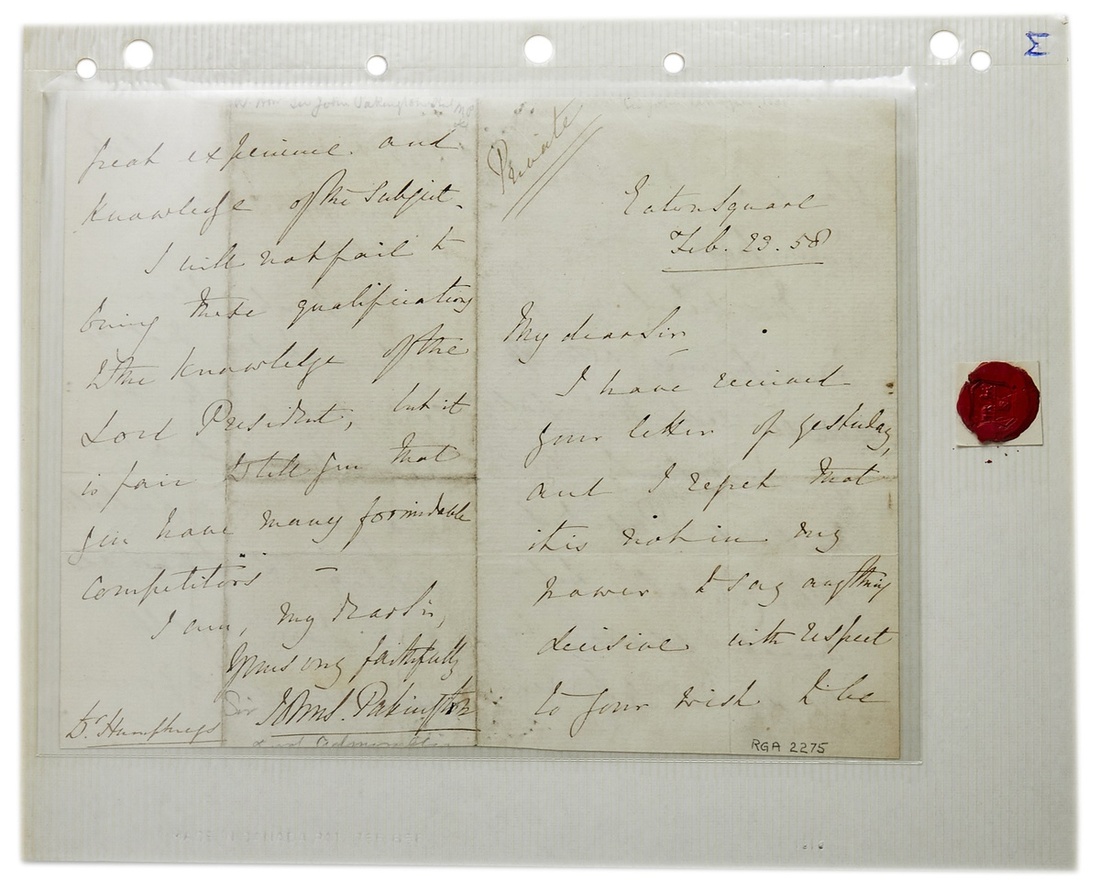 Private
Eaton Square
Feb. 23. 58
My dear Sir
I have received
your letter of yesterday,
and I regret that
it is not in my
power to say anything
decisive with respect
to your wish to be
great experience and
knowledge of the subject.
I will not fail to
bring these qualifications
to the knowledge of the
Lord President, but it
is fair to tell you that
you have many formidable
competitors –
I am, my dear Sir,
Yours very faithfully
John S. Pakington
Dr. Humphreys
Sir John Pakington
RGA 2275
Σ